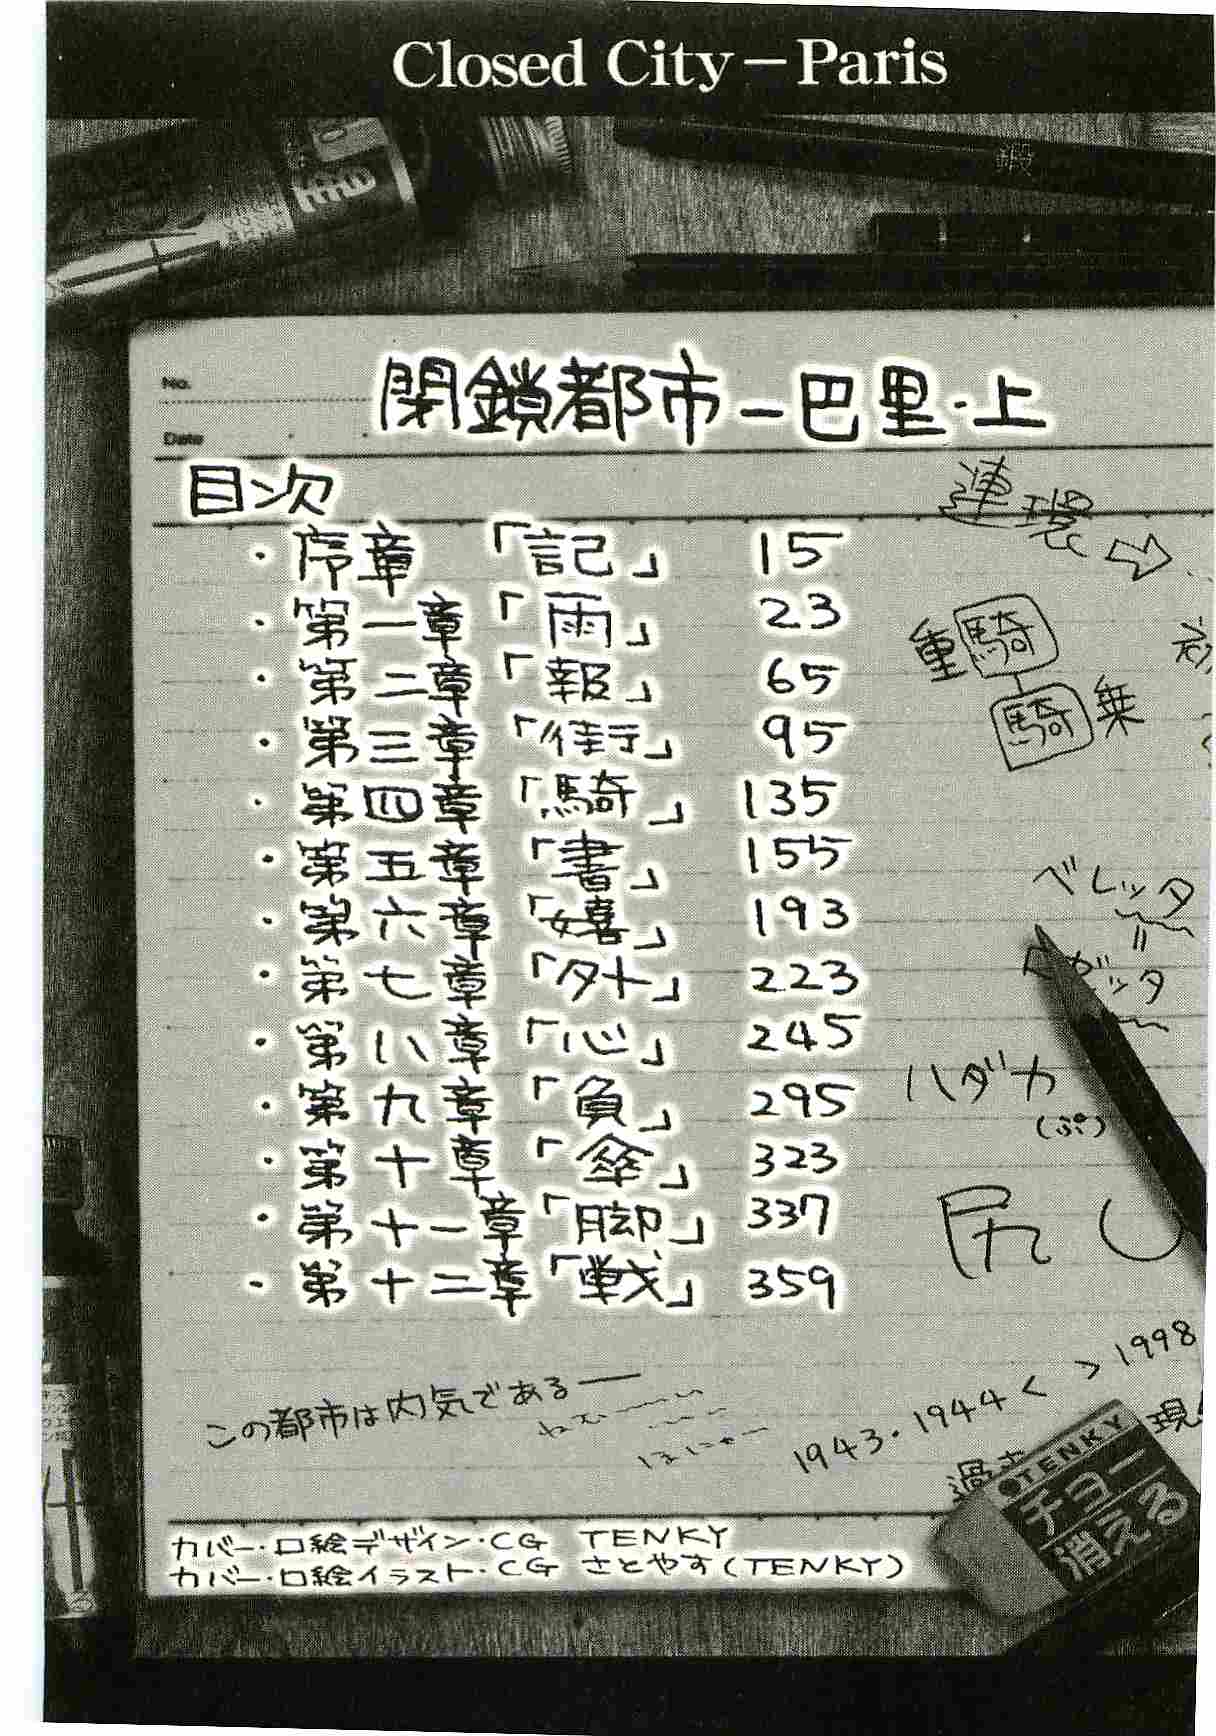 Closed City－Paris
鍛
No.
Date
閉鎖都市－巴里・上
目次
・序章「記」 15
・第一章「雨」 23
・第二章「報」 65
・第三章「街」 95
・第四章「騎」 135
・第五章「書」 155
・第六章「嬉」 193
・第七章「外」 223
・第八章「心」 245
・第九章「負」 295
・第十章「傘」 323
・第十一章「脚」 337
・第十二章「戦」 359
連環
重騎
騎乗
ベレッタ
＝
ロゼッタ
ハダカ
(ぷ)
尻
この都市は内気である――
ねむ
ほにゃー
1943・1944 < > 1998
過去
現
TENKY
チョー
消える
カバー・口絵デザイン・CG TENKY
カバー・口絵イラスト・CG さとやす(TENKY)